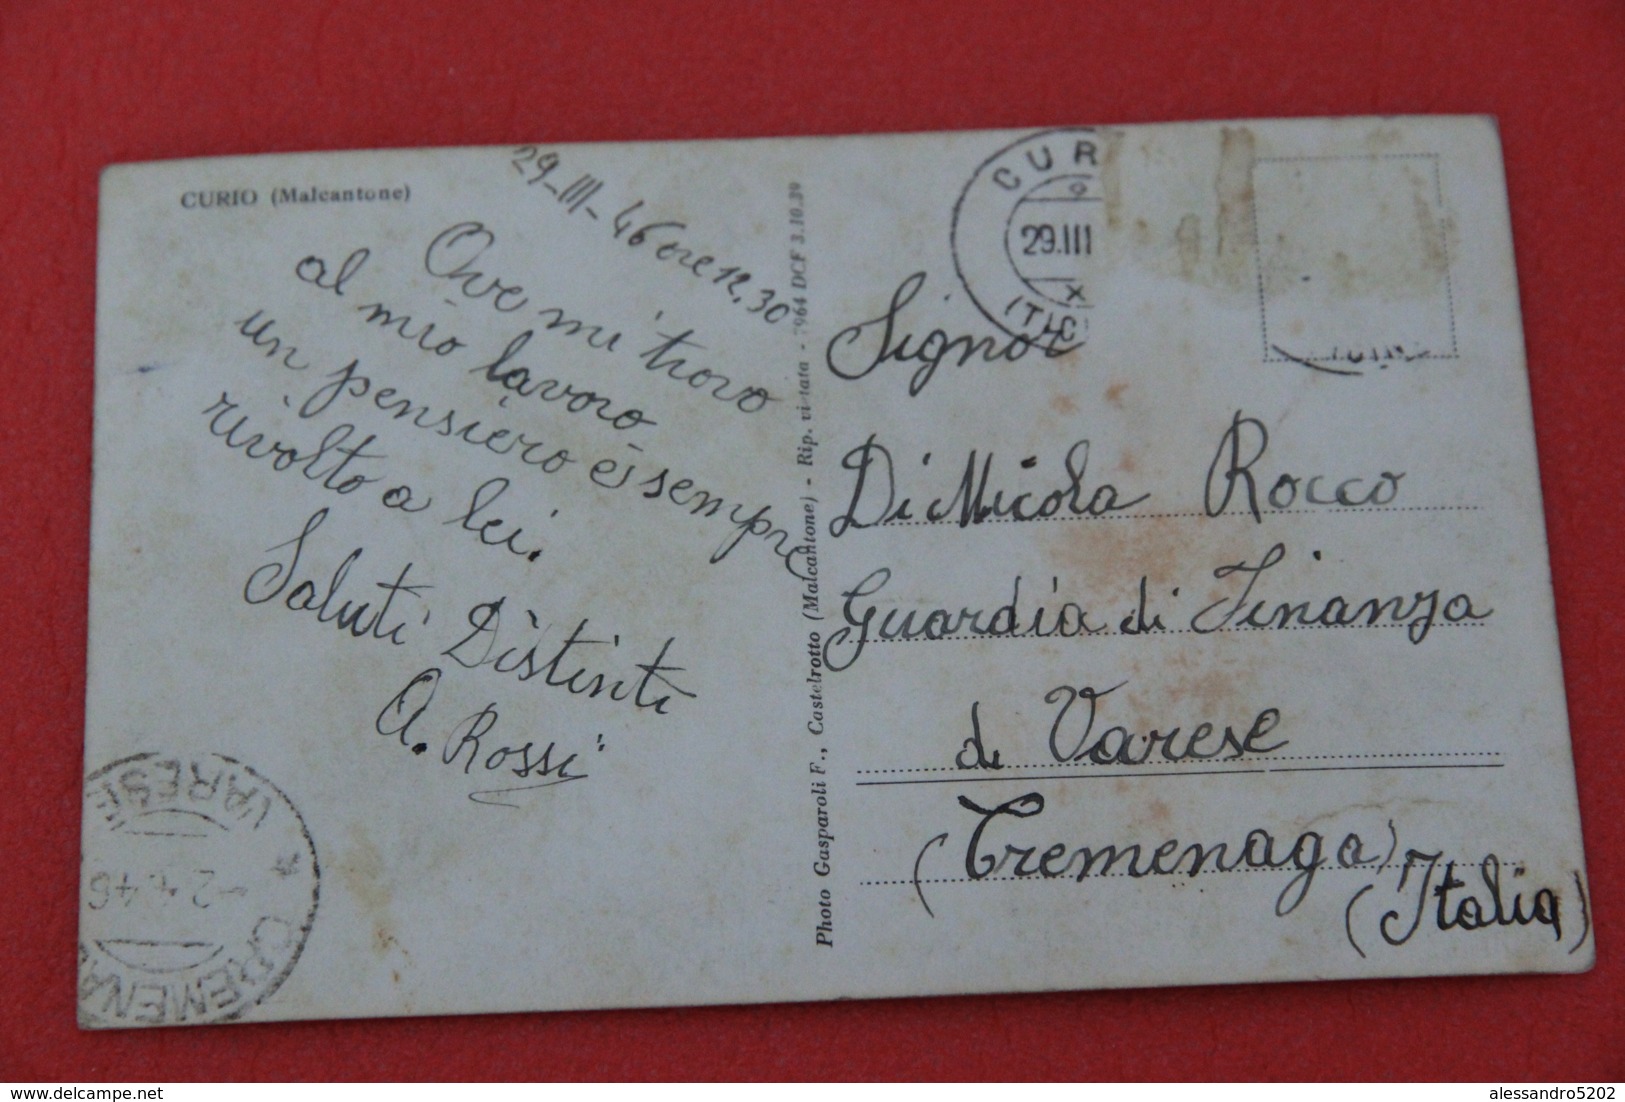 CURIO (Malcantone)
29-III-46 ore 12,30
Ove mi trovo
al mio lavoro
un pensiero è sempre
rivolto a lei.
Saluti Distinti
A. Rossi
VARESE
CREMENA
Photo Gasparoli F., Castelrotto (Malcantone) - Rip. vietata - 7964 DCF 3.10.39
CUR
29.III
(TIC
Signor
Di Nicola Rocco
Guardia di Finanza
di Varese
(Cremenaga)
(Italia)
delcampe.net
alessandro5202